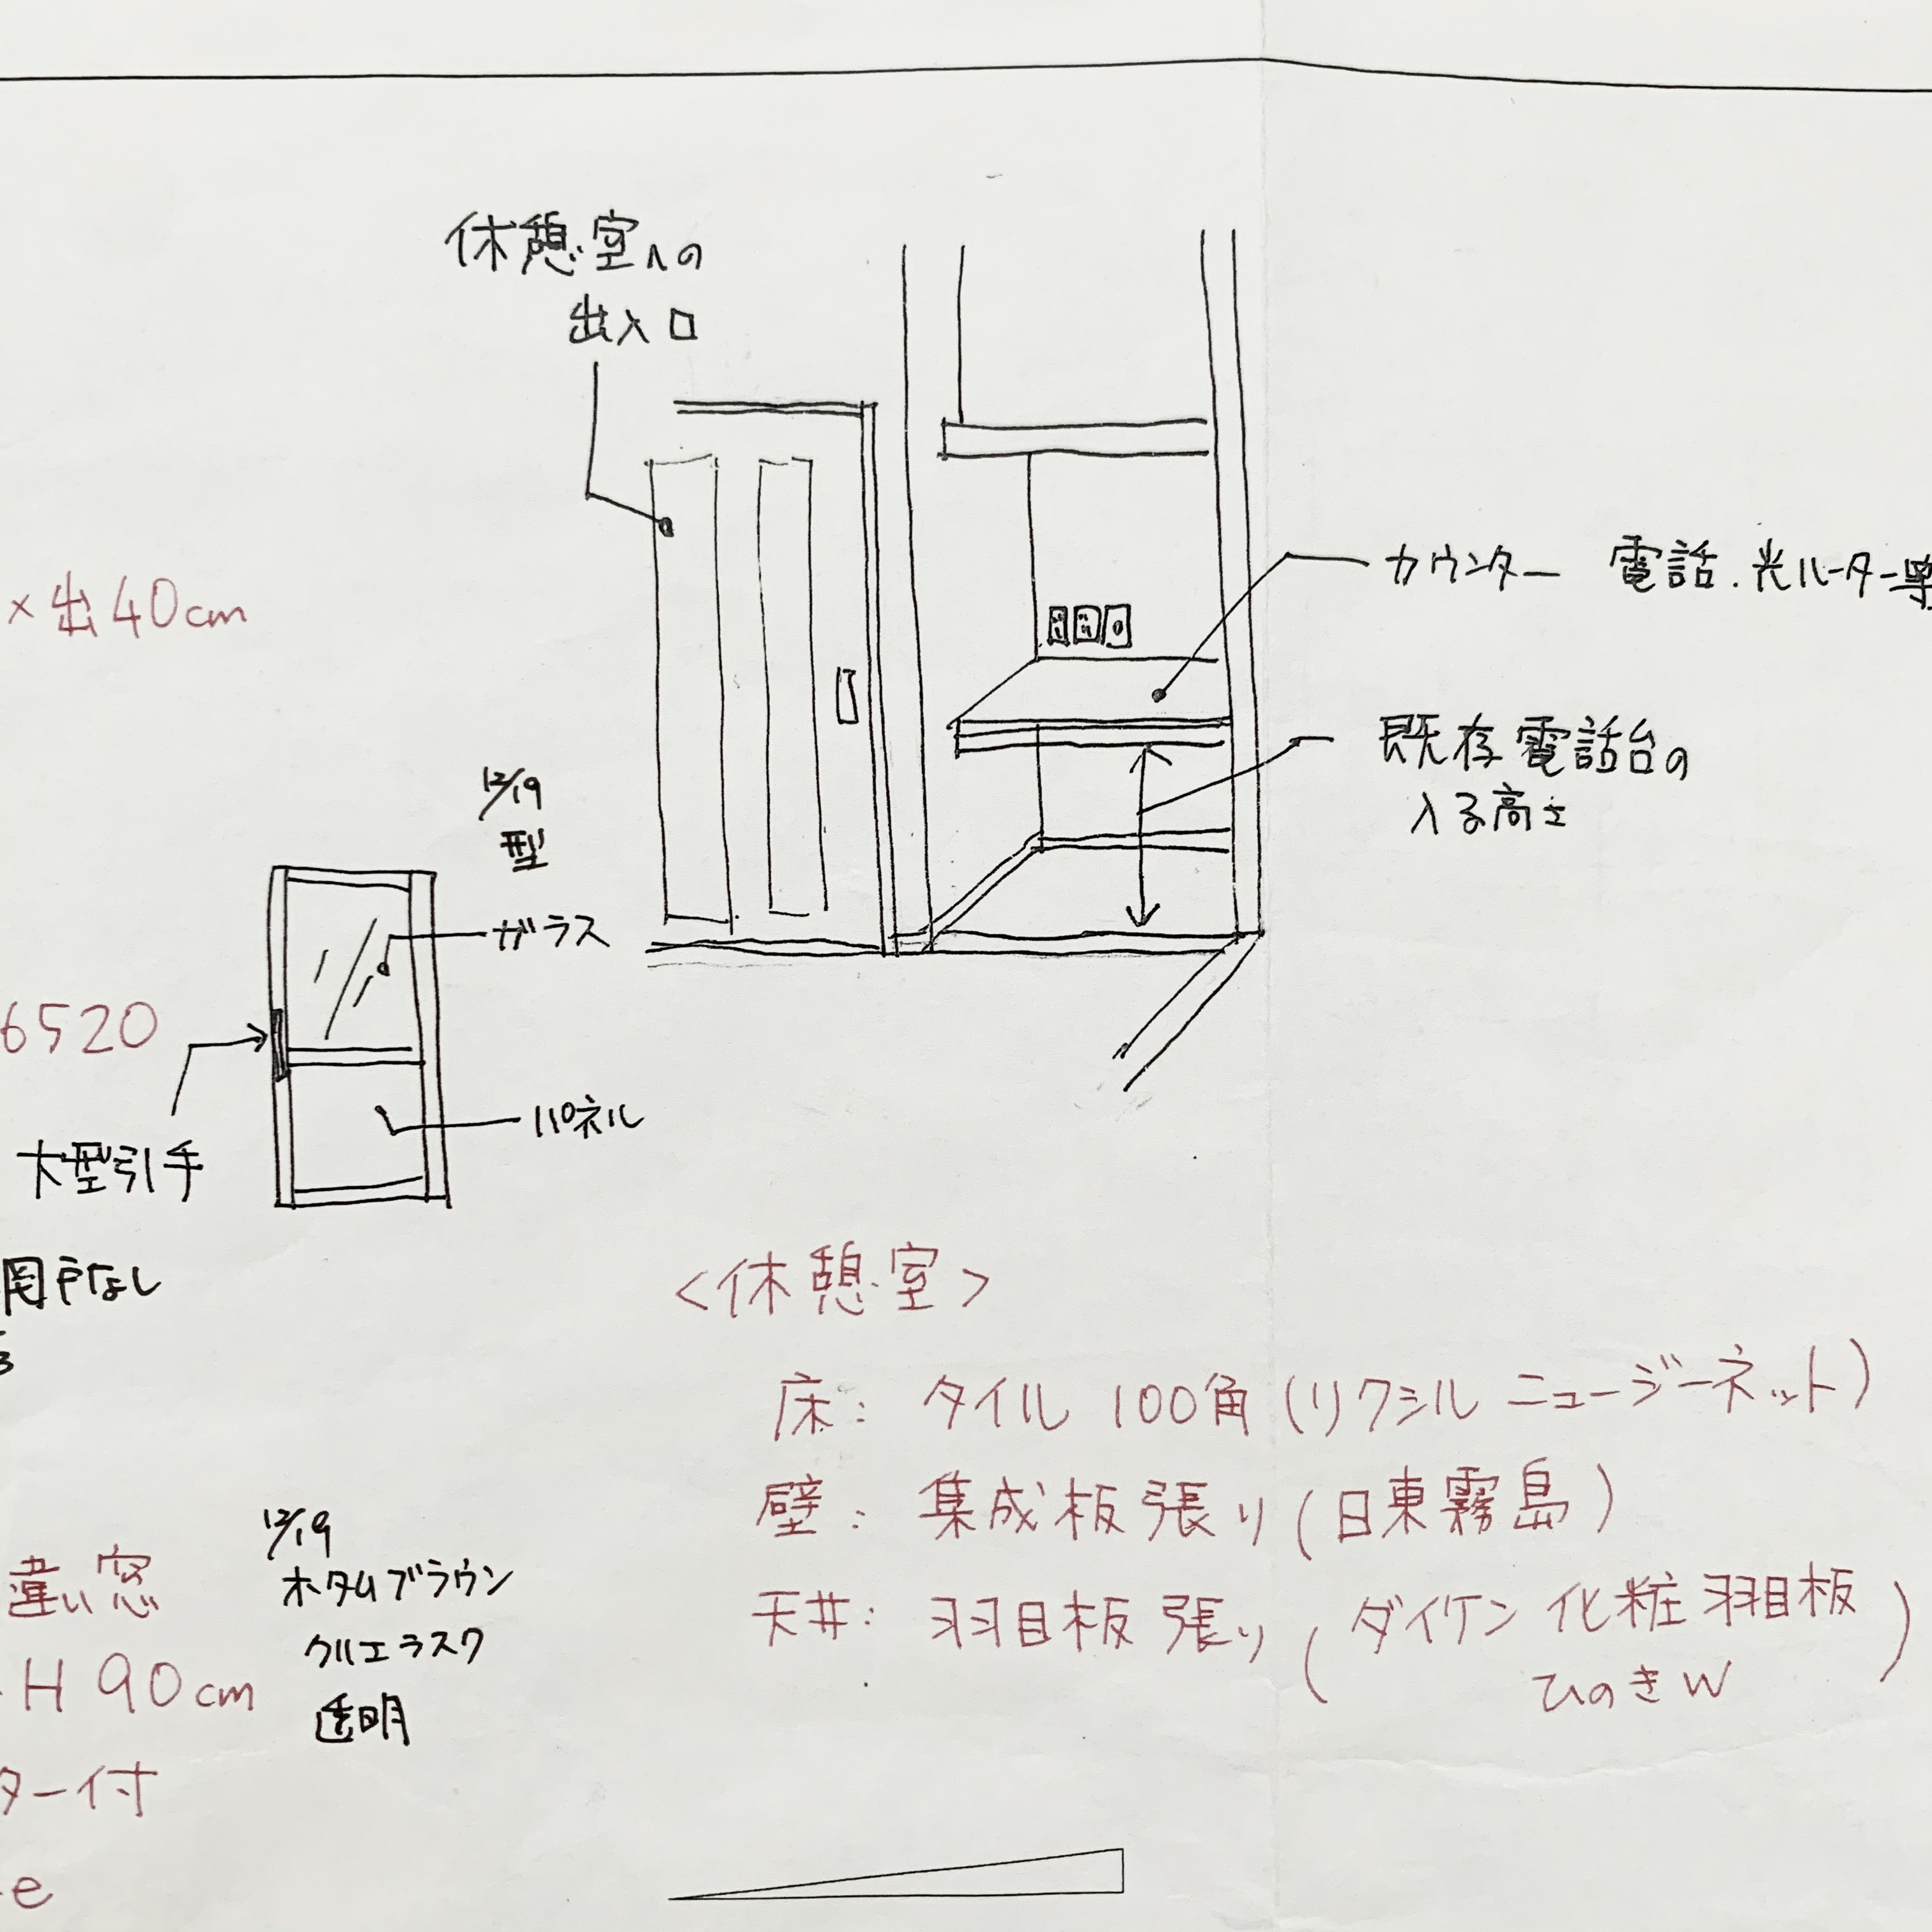 休憩室への
出入口
×出40cm
カウンター 電話.光ルーター等
既存電話台の
入る高さ
12/19
型
ガラス
6520
パネル
大型引手
網戸なし
<休憩室>
床: タイル 100角(リクシル ニュージーネット)
壁: 集成板張り(日東霧島)
天井: 羽目板張り(ダイケン 化粧羽目板
ひのきW)
12/19
違い窓
ホタムブラウン
クリエラスク
透明
H 90cm
ター付
e